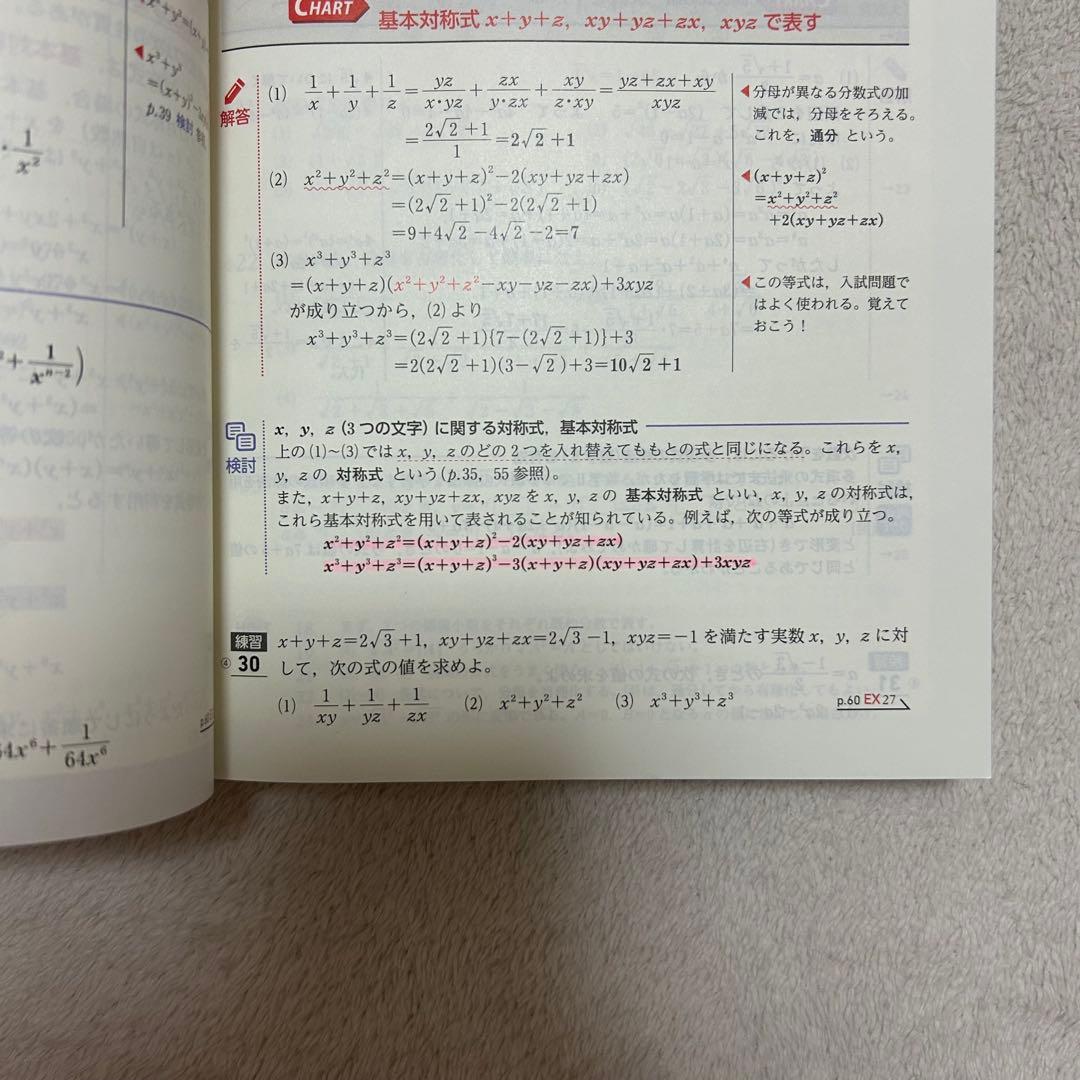 CHART
基本対称式 x+y+z, xy+yz+zx, xyz で表す
解答
(1) 1/x+1/y+1/z=yz/x・yz+zx/y・zx+xy/z・xy=yz+zx+xy/xyz
=2√2+1/1=2√2+1
◀分母が異なる分数式の加
減では, 分母をそろえる。
これを, 通分 という。
(2) x²+y²+z²=(x+y+z)²−2(xy+yz+zx)
=(2√2+1)²−2(2√2+1)
=9+4√2−4√2−2=7
◀(x+y+z)²
=x²+y²+z²
+2(xy+yz+zx)
(3) x³+y³+z³
=(x+y+z)(x²+y²+z²−xy−yz−zx)+3xyz
が成り立つから, (2)より
x³+y³+z³=(2√2+1){7−(2√2+1)}+3
=2(2√2+1)(3−√2)+3=10√2+1
◀この等式は, 入試問題で
はよく使われる。覚えて
おこう!
検討
x, y, z(3つの文字)に関する対称式, 基本対称式
上の(1)~(3)では x, y, z のどの2つを入れ替えてももとの式と同じになる。これらを x,
y, z の 対称式 という(p.35, 55参照)。
また, x+y+z, xy+yz+zx, xyz を x, y, z の 基本対称式 といい, x, y, z の対称式は,
これら基本対称式を用いて表されることが知られている。例えば, 次の等式が成り立つ。
x²+y²+z²=(x+y+z)²−2(xy+yz+zx)
x³+y³+z³=(x+y+z)³−3(x+y+z)(xy+yz+zx)+3xyz
練習
④ 30
x+y+z=2√3+1, xy+yz+zx=2√3−1, xyz=−1 を満たす実数 x, y, z に対
して, 次の式の値を求めよ。
(1) 1/xy+1/yz+1/zx (2) x²+y²+z² (3) x³+y³+z³
p.60 EX27
◀x³+y³
=(x+y)³
p.39 検討
1/x²
+1/xⁿ⁻²)
64x⁶+1/64x⁶